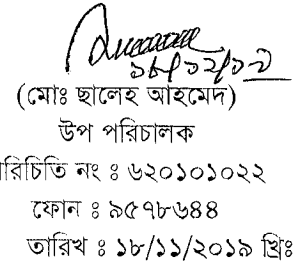 ১৮/১১/১৯
(মোঃ ছালেহ আহমেদ)
উপ পরিচালক
পরিচিতি নং : ৬২০১০১০২২
ফোন : ৯৫৭৮৬৪৪
তারিখ : ১৮/১১/২০১৯ খ্রিঃ